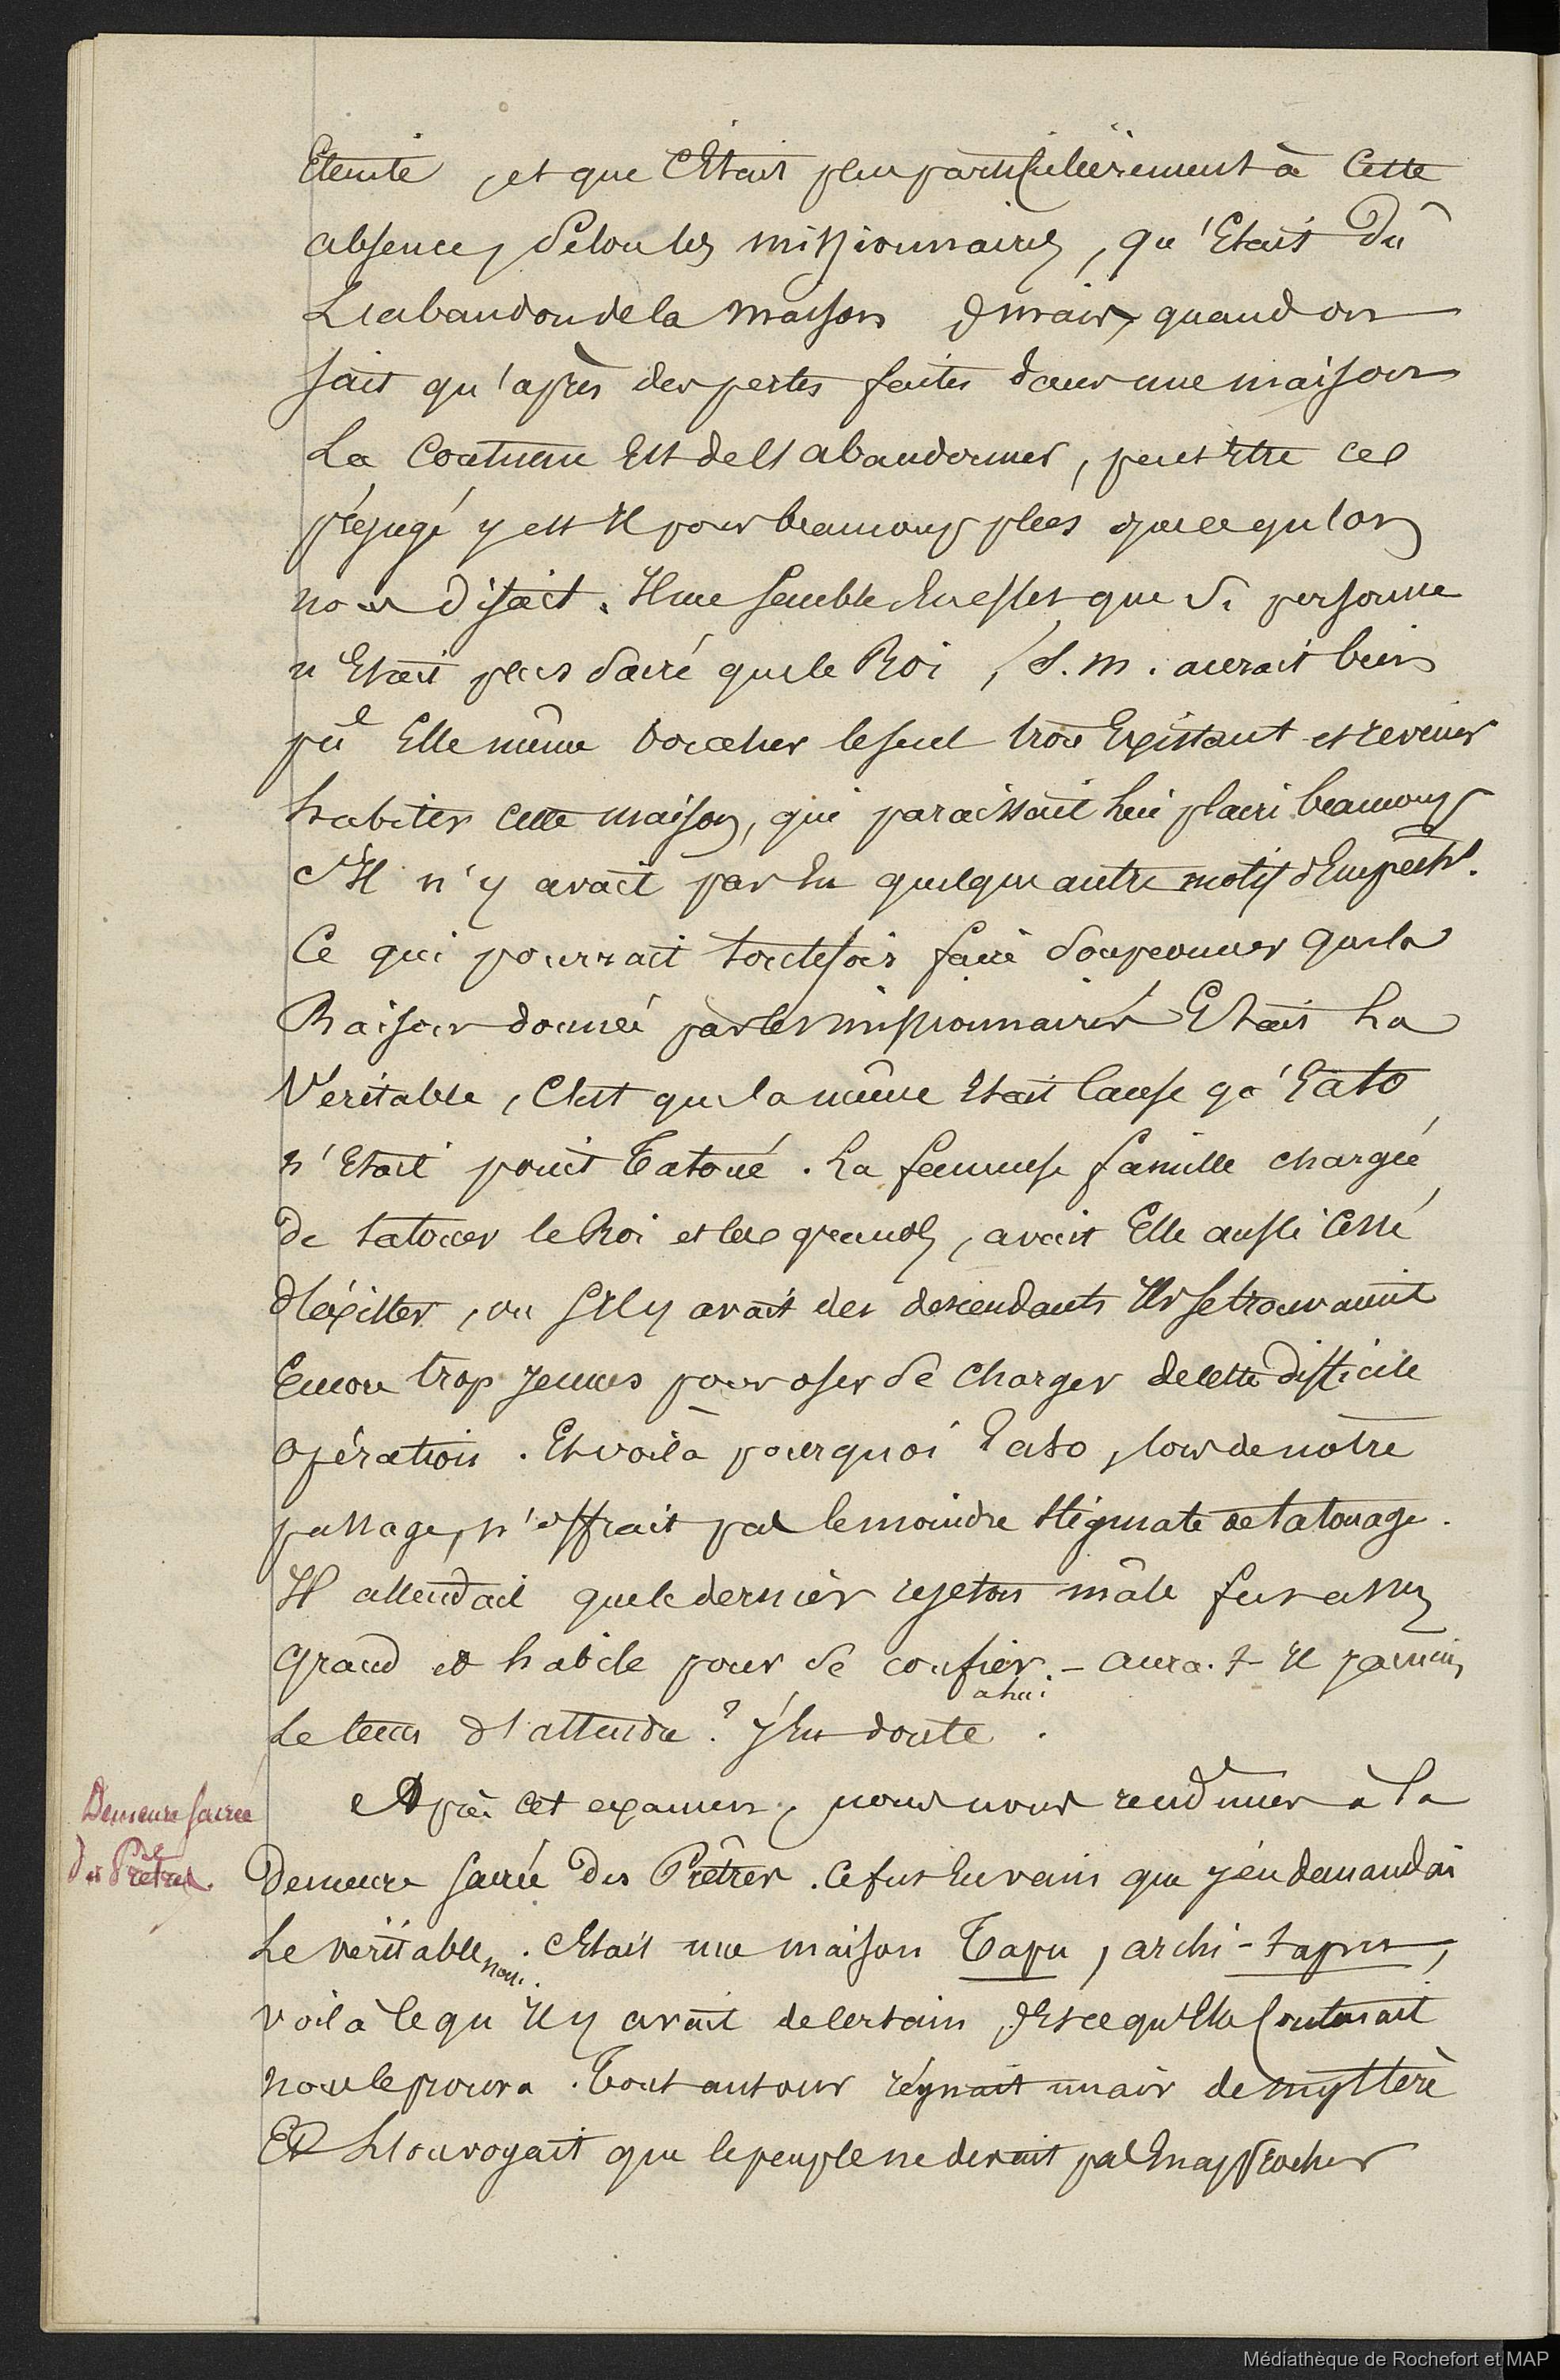 Eteinte, et que C'Etait plus particulièrement à Cette
absence, Selon les missionnaires, qu'Etait Dû
L'abandon de la maison ; mais, quand on
sait qu'après des pertes faites dans une maison
La Coutume Est de l'abandonner, peut Etre ce
préjugé y est Il pour beaucoup plus que ce qu'on
nous disait. Il me semble En effet que Si personne
n'Etait plus Sacré que le Roi, S. M. aurait bien
pû Elle même boucher le seul trou Existant et revenir
habiter cette maison, qui paraissait lui plaire beaucoup
S'Il n'y avait pas Eu quelque autre motif d'Empecht.
Ce qui pourrait toutefois faire Soupçonner que la
Raison donnée par les missionnaires Etait La
Véritable, C'est que la même Etait Cause qu'Eato
n'Etait point Tatoué. La fameuse famille chargée
de tatouer le Roi et les grands, avait Elle aussi Cessé
d'éxister, ou s'Il y avait des descendants Ils se trouvaient
Encore trop jeunes pour oser Se Charger de cette difficile
opération. Et voilà pourquoi Eato, lors de notre
passage, n'offrait pas le moindre Stigmate de tatouage.
Il attendait que le dernier rejeton mâle fut assez
Grand et habile pour Se confier - aura-t-Il jamais
a lui
Le tems d'attendre ? j'En doute.
Après cet examen, nous nous rendimes à la
Demeure Sacrée
des Prêtres.
Demeure Sacrée Des Prêtres. Ce fut En vain que j'en demandai
Le veritable nom. C'Etait une maison Tapu, archi-tapu,
voilà ce qu'Il y avait de certain, Et ce qu'Elle Contenait
nous le prouva. Tout autour régnait un air de mystère
Et L'on voyait que le peuple ne devait pas En approcher
Médiathèque de Rochefort et MAP